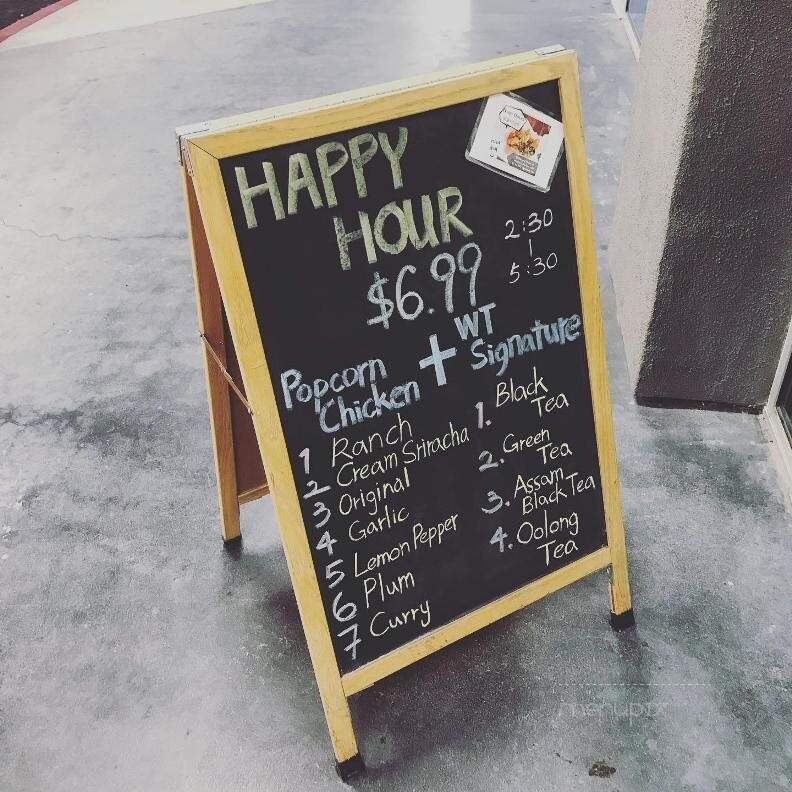 HAPPY
HOUR
2:30
|
5:30
$6.99
Popcorn
Chicken
+
WT
Signature
1 Ranch
2 Cream Sriracha
3 Original
4 Garlic
5 Lemon Pepper
6 Plum
7 Curry
1. Black
Tea
2. Green
Tea
3. Assam
Black Tea
4. Oolong
Tea
menupix